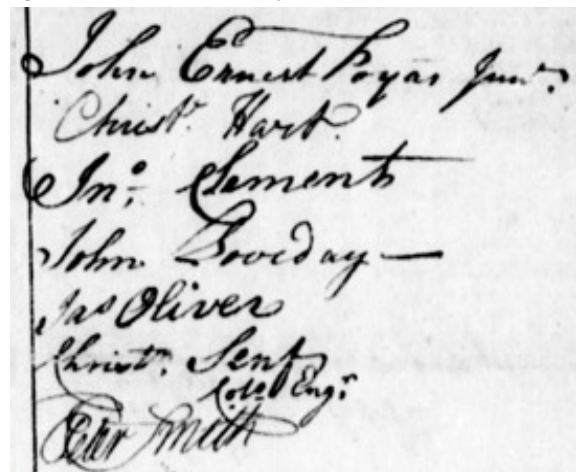 John Ernest Poyas Junr.
Christr. Hart.
Jno. Clement
John Loveday —
Jas Oliver
Christn. Senf
Colo. Engr.
Peter Smith